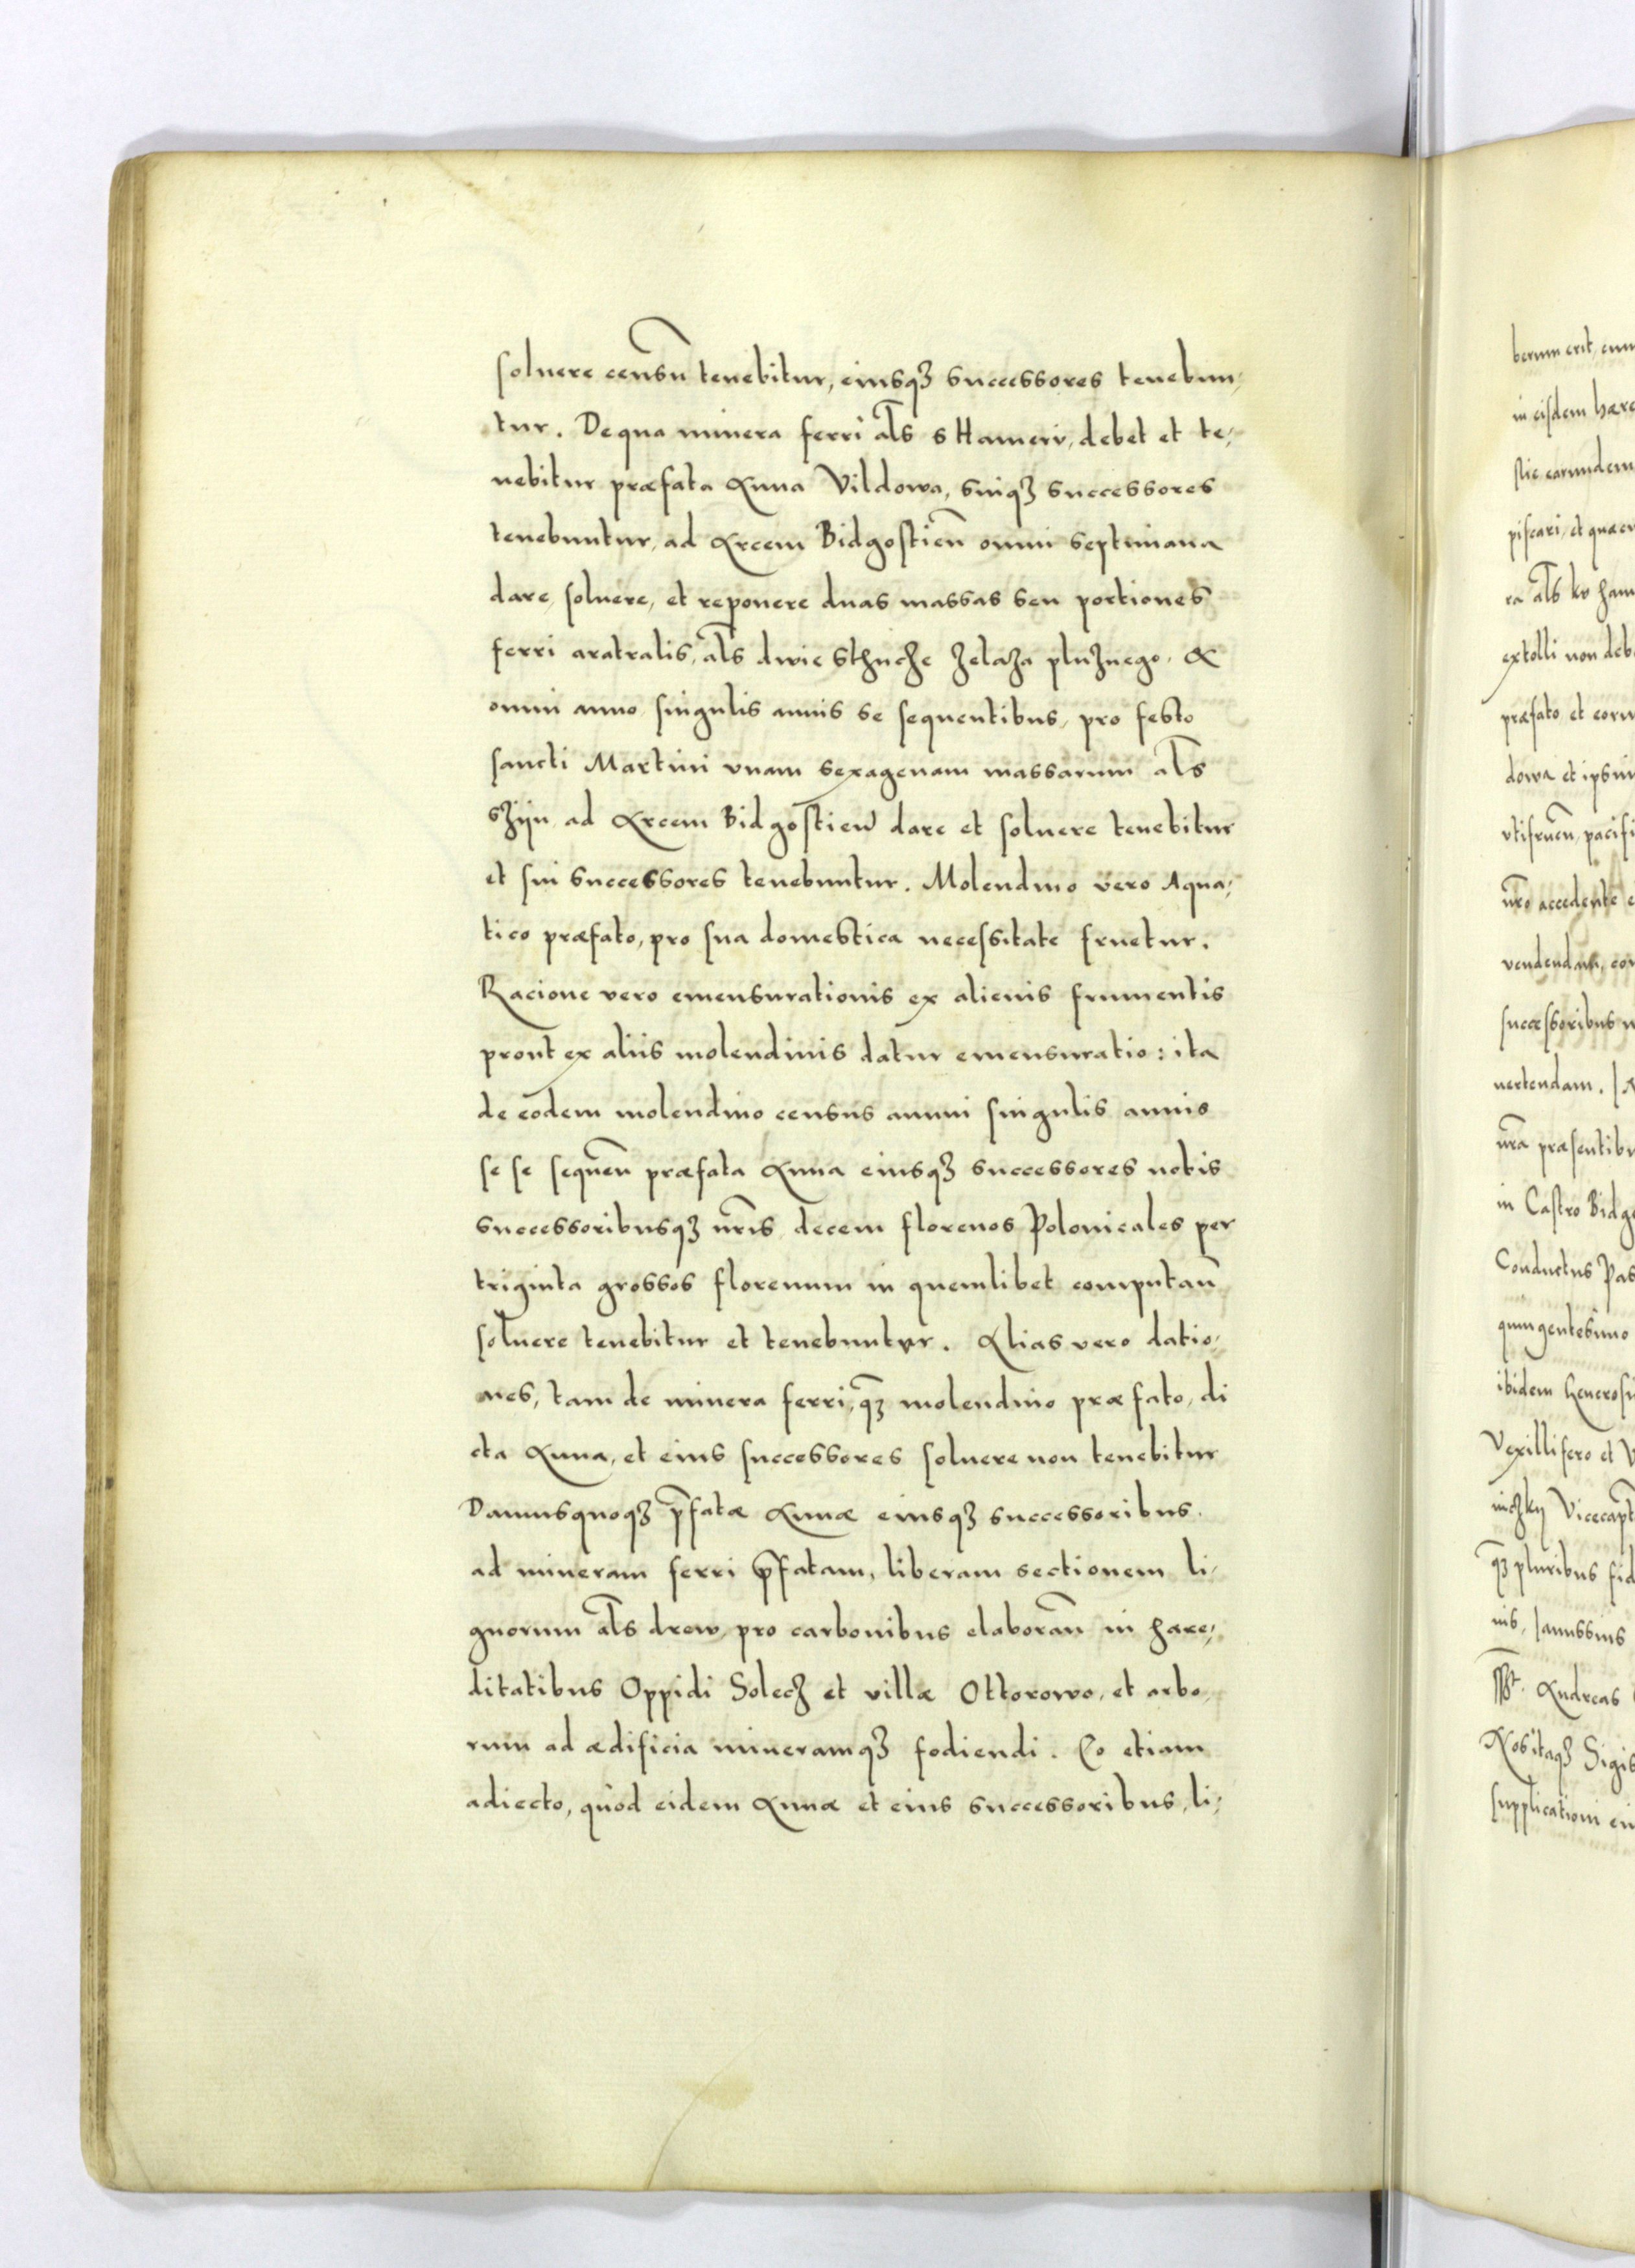 soluere censũ tenebitur, eiusqꝫ successores tenebun-
tur. De qua minera ferri al̃s s Hameri, debet et te-
nebitur præfata Anna Vildowa, suiqꝫ successores
tenebuntur, ad Arcem Bidgostieñ omni septimana
dare, soluere, et reponere duas massas seu portiones
ferri aratralis, al̃s dwie sthuchze zelaza pluznego. &
omni anno singulis annis se sequentibus, pro festo
sancti Martini vnam sexagenam massarum al̃s
szijn ad Arcem Bidgostieñ dare et soluere tenebitur
et sui successores tenebuntur. Molendino vero Aqua-
tico præfato, pro sua domestica necessitate fruetur.
Racione vero emensurationis ex alienis frumentis
prout ex aliis molendinis datur emensuratio: ita
de eodem molendino census annui singulis annis
se se sequeñ præfata Anna eiusqꝫ successores nobis
successoribusqꝫ nr̃is decem florenos Polonicales per
triginta grossos florenum in quemlibet computañ
soluere tenebitur et tenebuntur. Alias vero datio-
nes, tam de minera ferri, qꝫ̃ molendino præfato, di
cta Anna, et eius successores soluere non tenebitur
Damusquoqꝫ p̃fatæ Annæ eiusqꝫ successoribus.
ad mineram ferri p̃fatam, liberam sectionem li-
gnorum al̃s drew, pro carbonibus elaborañ in hære-
ditatibus Oppidi Solecz et villæ Ottorowo, et arbo-
rum ad ædificia mineramqꝫ fodiendi. Eo etiam
adiecto, quòd eidem Annæ et eius successoribus, li-
berum erit, cum
in eisdem hære
stie earundem
piscari, et quæcu
ra al̃s kv ham
extolli non deb
præfato et eoru
dowa et ipsiu
vtifrueñ, pacifi
nr̃o accedente
vendendam, co
successoribus
uertendam.
nr̃a præsentibu
in Castro Bidg
Conductus Pas
quingentesimo
ibidem Generosi
Vexillifero et V
niczky Vicecapt̃
qꝫ̃ pluribus fid
nis, Ianussius
Andreas
Nositaqꝫ Sigis
supplicationi